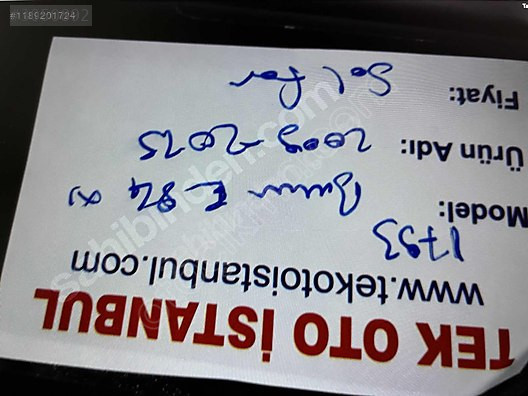 TEK OTO İSTANBUL
www.tekotoistanbul.com
1793
Model: Bmw E-84 X1
Ürün Adı: 2009-2015
Fiyat: Sol far
#1189201724
sahibinden.com